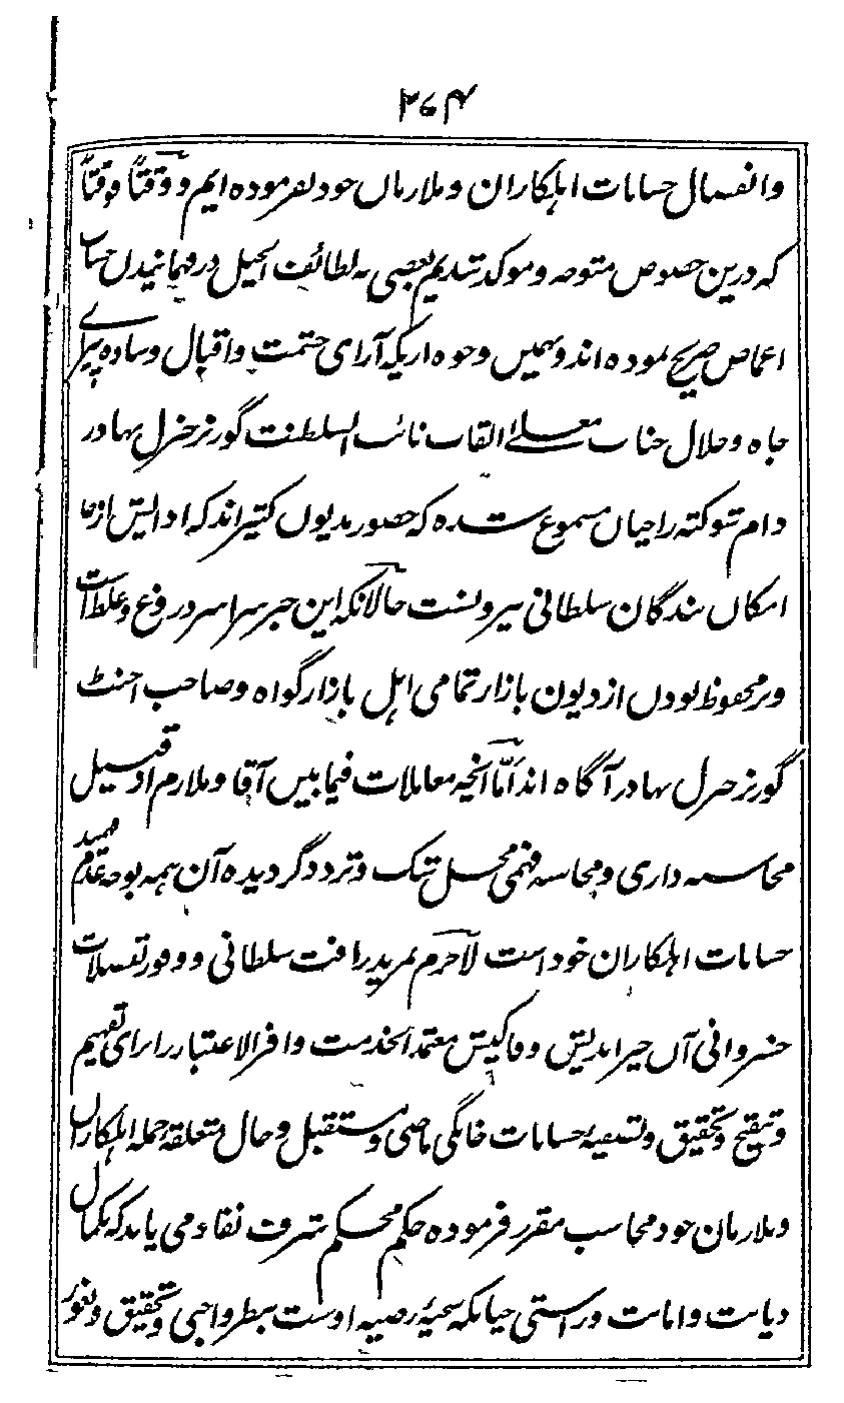 ۲۶۴
وانفصال حسابات اہلکاران و ملازمان خود نفرموده ایم و وقتاً فوقتاً
که درین خصوص متوجه و موکد شدیم بعضی به لطائف الحیل در فہمانیدن حساب
اغماض صریح نموده اند و بہمین وجوه اریکه آرای حشمت و اقبال و ساده پیرای
جاه و جلال جناب معلے القاب نائب السلطنت گورنر جنرل بہادر
دام شوکته را چنان مسموع شده که حضور مدیون کثیر اند که ادایش از
امکان بندگان سلطانی بیرونست حالانکه این خبر سراسر دروغ و غلط است
و بر محفوظ بودن از دیون بازار تمامی اہل بازار گواه و صاحب اجنٹ
گورنر جنرل بہادر آگاه اند امّا آنچه معاملات فیمابین آقا و ملازم از قبیل
محاسبه داری و محاسبه فہمی محل شک و تردد گردیده آن ہمه بوجه عدم فہمید
حسابات اہلکاران خود است لاجرم بمزید رافت سلطانی و وفور تفضلات
خسروانی آن خیر اندیش وفاکیش معتمد الخدمت وافر الاعتبار را برای تفہیم
و تنقیح و تحقیق و تصفیهٔ حسابات خانگی ماضی و مستقبل و حال متعلقه جمله اہلکاران
و ملازمان خود محاسب مقرر فرموده حکم محکم شرف نفاذ می یابد که بکمال
دیانت و امانت و راستی چنانکه سجیهٔ رضیه اوست بنظر واجبی و تحقیق و بغور